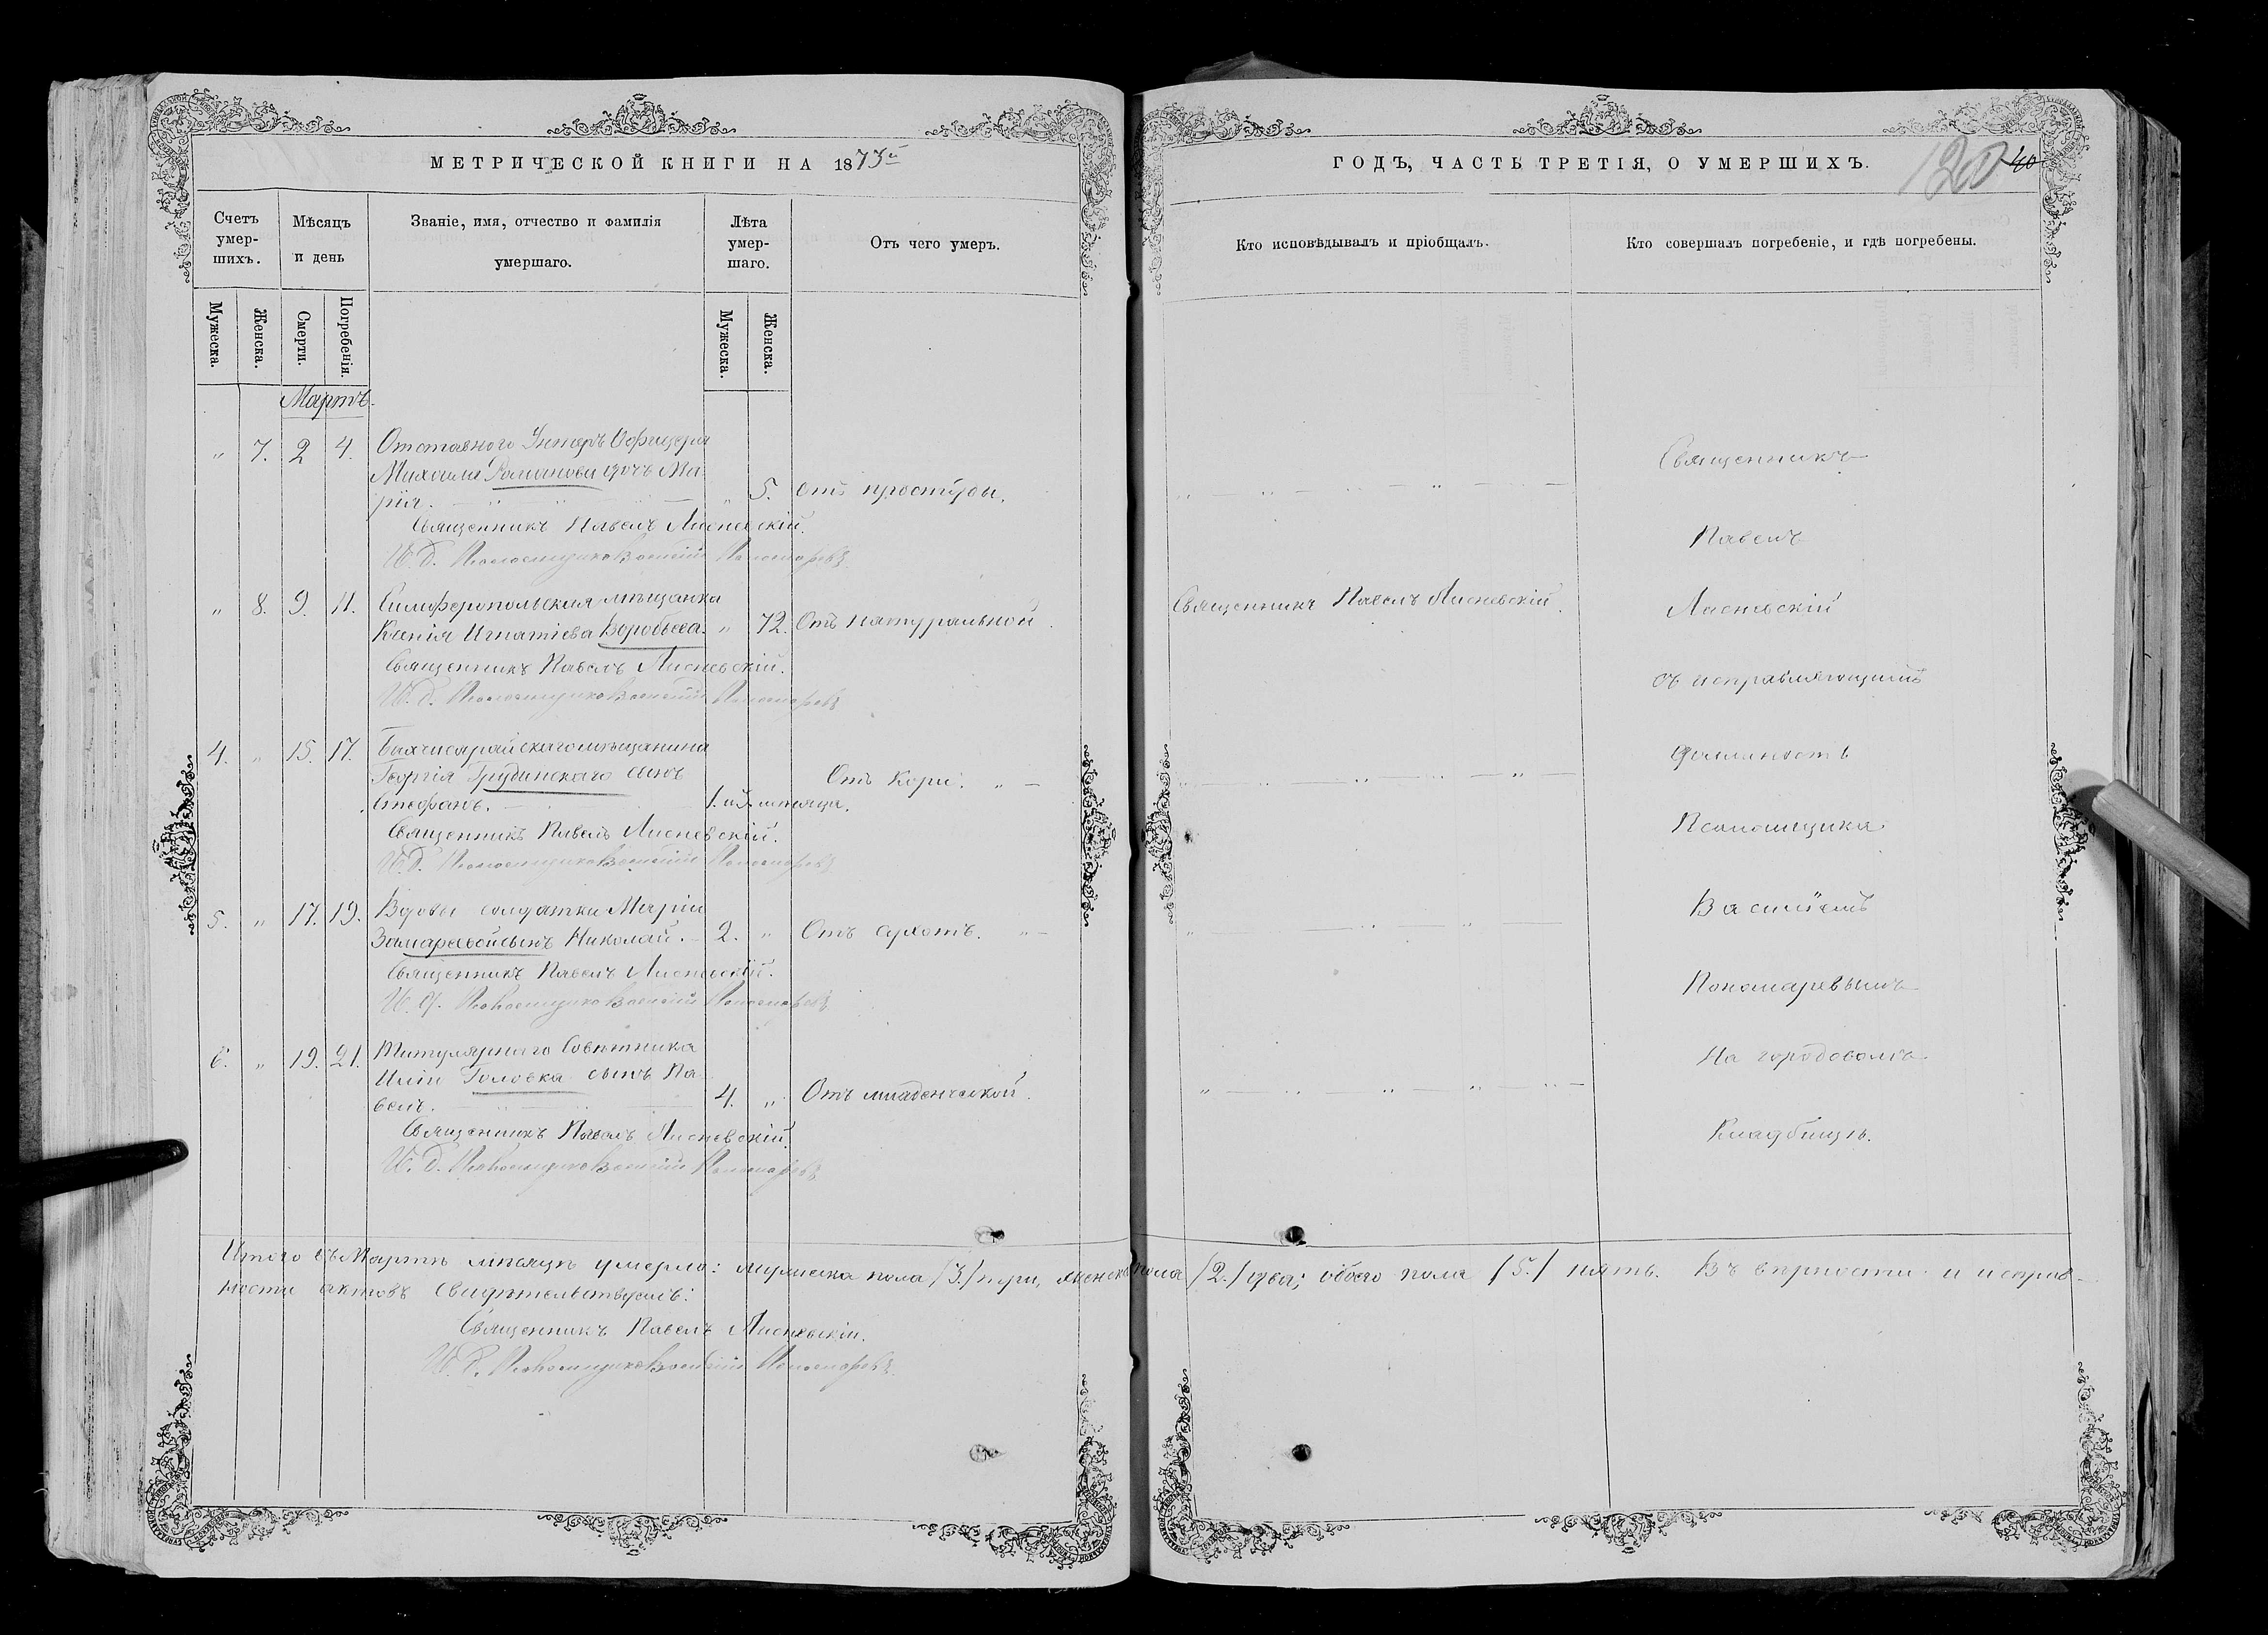 МЕТРИЧЕСКОЙ КНИГИ НА 1873й
ГОДЪ, ЧАСТЬ ТРЕТІЯ, О УМЕРШИХЪ.
120
40
Счетъ умер-шихъ.
Мѣсяцъ и день
Званіе, имя, отчество и фамилія умершаго.
Лѣта умер-шаго.
Отъ чего умеръ.
Кто исповѣдывалъ и пріобщалъ.
Кто совершалъ погребеніе, и гдѣ погребены.
Мужеска.
Женска.
Смерти.
Погребенія.
Мужеска.
Женска.
Мартъ.
" 7. 2 4. Отставного Унтеръ Офицера
Михаила Романова дочь Ма-
рія. " 5. Отъ простуды.
Священникъ Павелъ Лисневскій.
И. д. Псаломщика Василій Пономаревъ
" 8. 9. 11. Симферопольская мѣщанка
Ксенія Игнатіева Воробьева. " 72. Отъ натуральной.
Священникъ Павелъ Лисневскій.
Священникъ Павелъ Лисневскій.
И. д. Псаломщика Василій Пономаревъ
4. " 15. 17. Бахчисарайскаго мѣщанина
Георгія Грудинскаго сынъ
Стефанъ. 1. и 3. мѣсяца. Отъ кори. "
Священникъ Павелъ Лисневскій.
И. д. Псаломщика Василій Пономаревъ
5. " 17. 19. Вдовы солдатки Маріи
Замараевой сынъ Николай. 2. " Отъ сухотъ. "
Священникъ Павелъ Лисневскій.
И. д. Псаломщика Василій Пономаревъ
6. " 19. 21. Титулярнаго Совѣтника
Иліи Головка сынъ Па-
велъ. 4. " Отъ младенческой.
Священникъ Павелъ Лисневскій.
И. д. Псаломщика Василій Пономаревъ
Священникъ
Павелъ
Лисневскій
съ исправляющимъ
должность
Псаломщика
Василіемъ
Пономаревымъ
На городовомъ
Кладбищѣ.
Итого въ Мартѣ мѣсяцѣ умерло: мужеска пола /3./ три, женска пола /2./ два; обоего пола /5./ пять. Въ вѣрности и исправ-
ности актовъ свидѣтельствуемъ:
Священникъ Павелъ Лисневскій.
И. д. Псаломщика Василій Пономаревъ